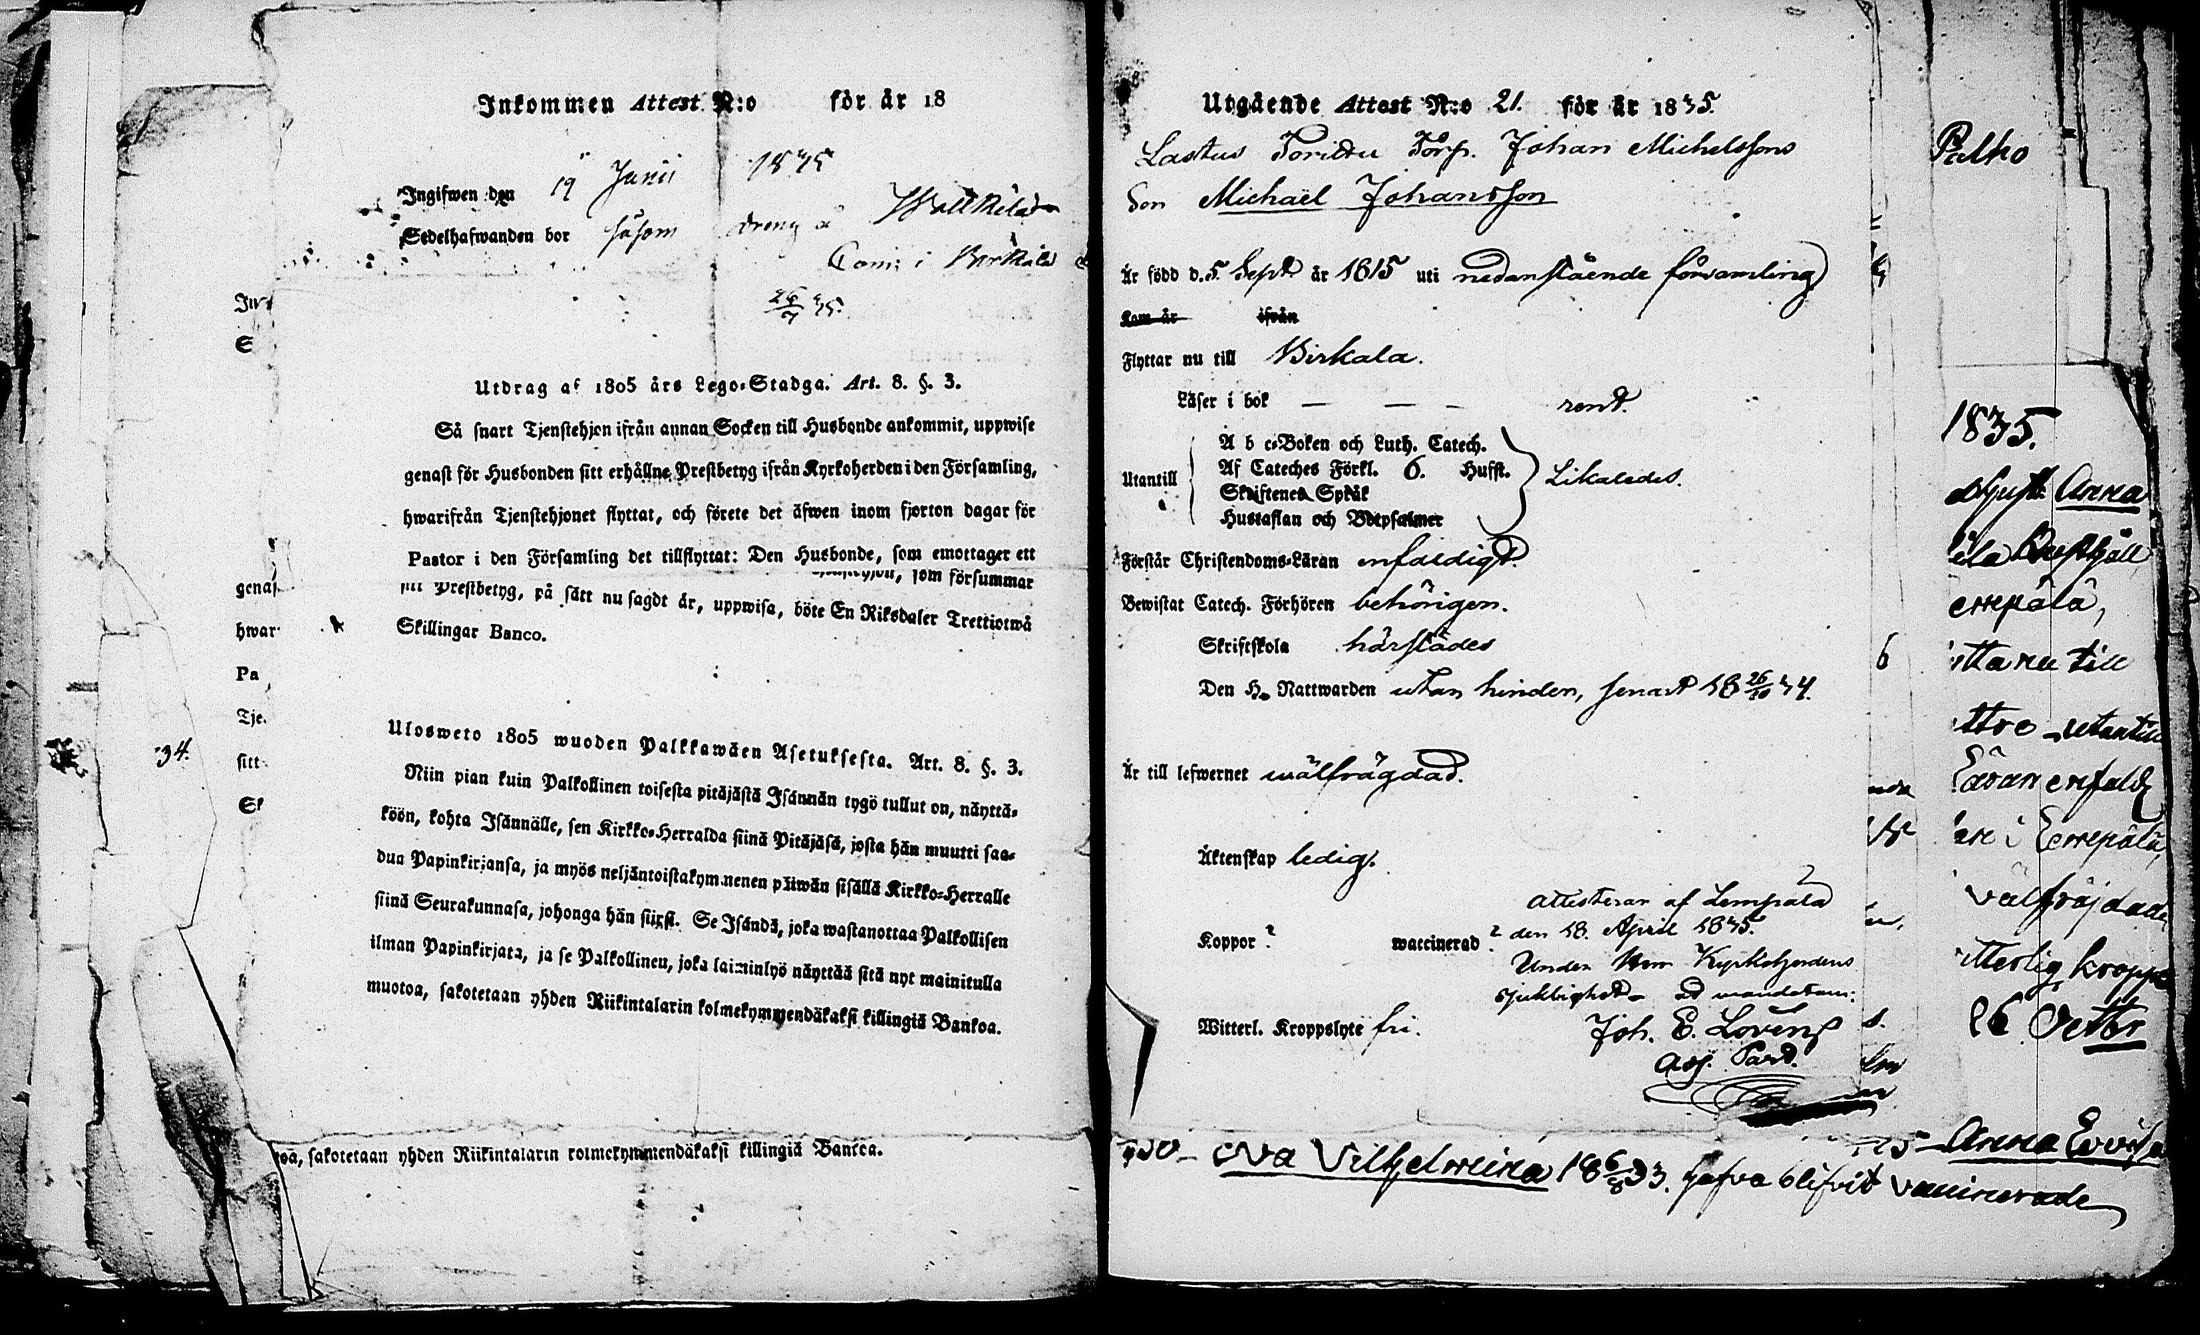 Inkommen Attest N:o för år 18
Ingifwen den 19 Junii 1835
Sedelhafwanden bor såsom dreng å
i Birkala
26/7 35.
Utdrag af 1805 års Lego-Stadga. Art. 8. §. 3.
Så snart Tjenstehjon ifrån annan Socken till Husbonde ankommit, uppwise
genast för Husbonden sitt erhållne Prestbetyg ifrån Kyrkoherden i den Församling,
hwarifrån Tjenstehjonet flyttat, och förete det äfwen inom fjorton dagar för
Pastor i den Församling det tillflyttat: Den Husbonde, som emottager ett
som försummar
sitt Prestbetyg, på sätt nu sagdt är, uppwisa, böte En Riksdaler Trettiotwå
Skillingar Banco.
Ulosweto 1805 wuoden Palkkawäen Asetuksesta. Art. 8. §. 3.
Niin pian kuin Palkollinen toisesta pitäjästä Isännän tygö tullut on, näyttä-
köön, kohta Isännälle, sen Kirkko-Herralda siinä Pitäjäsä, josta hän muutti saa-
dua Papinkirjansa, ja myös neljäntoistakymmenen päiwän sisällä Kirkko-Herralle
siinä Seurakunnasa, johonga hän siirsi. Se Isändä, joka wastanottaa Palkollisen
ilman Papinkirjata, ja se Palkollinen, joka laiminlyö näyttää sitä nyt mainitulla
muotoa, sakotetaan yhden Riikintalarin kolmekymmendäkaksi killingiä Bankoa.
sakotetaan yhden Riikintalarin kolmekymmendäkaksi killingiä Bankoa.
genas
hwar
Pa
Tje
sitt
34.
Utgående Attest N:o 21. för år 1835.
Lastus Torp. Johan Michelssons
Son Michaël Johansson
Är född d. 5 Sept år 1815 uti nedanstående församling
Kom år ifrån
Flyttar nu till Birkala.
Läser i bok — — — rent.
Utantill
A b c-Boken och Luth. Catech.
Af Cateches Förkl. 6. Hufst.
Skriftenes Språk
Hustaflan och Botpsalmer
Likaledes.
Förstår Christendoms-Läran enfaldigt.
Bewistat Catech. Förhören behörigen.
Skriftskola härstädes
Den H. Nattwarden utan hinder, senast 18 26/10 34.
Är till lefwernet wälfrägdad.
Äktenskap ledig.
attesterar af Lempälä
Koppor ? waccinerad ? den 18. April 1835.
Under Herr Kyrkoherdens
sjuklighet ad mandatum:
Witterl. Kroppslyte fri. Joh. E. Lovén
Adj. Past.
Eva Vilhelmina 18 6/8 33. hafva blifvit vaccinerade
Palho
1835.
Anna
errepälä,
ttar nu till
ttre utantill
Läran enfald
i Cerrepälä,
välfräjdade
itterlig kropps
26 Octbr
Anna Lovisa